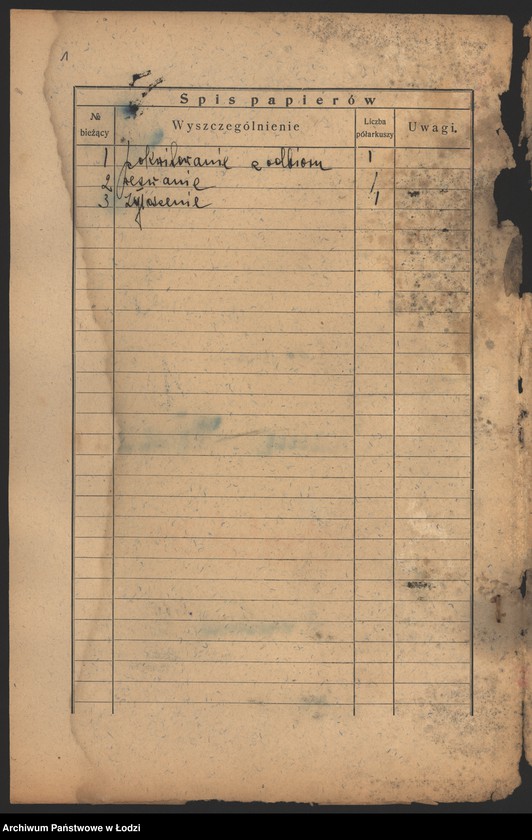 1
Spis papierów
№ bieżący Wyszczególnienie Liczba półarkuszy Uwagi.
1 pokwitowanie z odbioru 1
2 wezwanie 1
3 zgłoszenie 1
Archiwum Państwowe w Łodzi